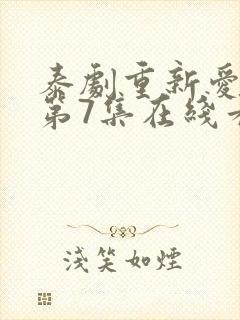 泰劇重新愛
第7集在綫
淺笑如煙